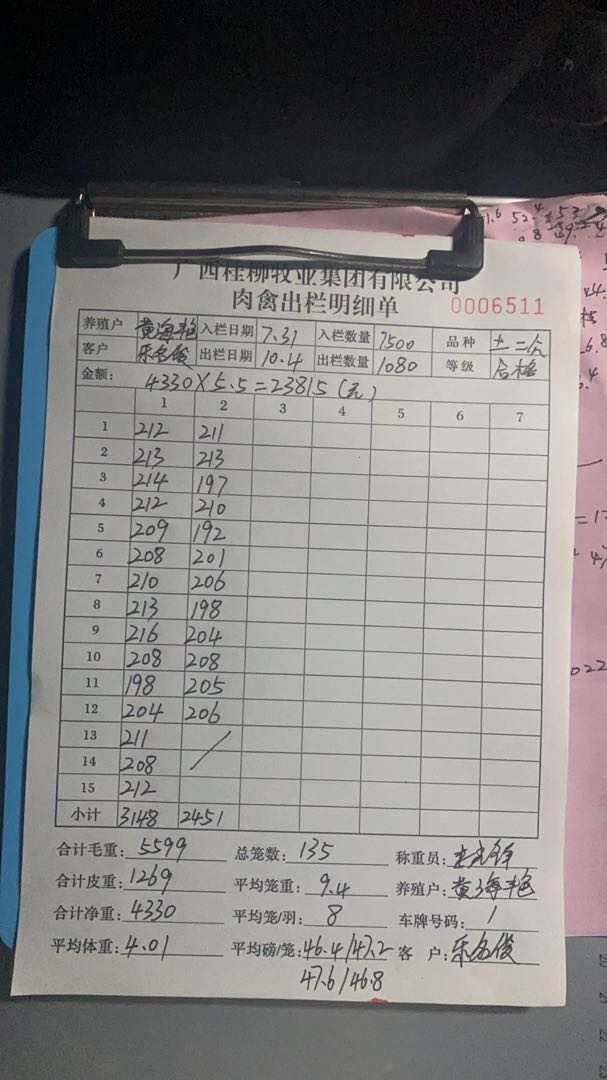 广西桂柳牧业集团有限公司
肉禽出栏明细单 0006511
养殖户 黄海艳 入栏日期 7.31 入栏数量 7500 品种 土二
客户 乐名俊 出栏日期 10.4 出栏数量 1080 等级 合格
金额: 4330×5.5=23815(元)
1 2 3 4 5 6 7
1 212 211
2 213 213
3 214 197
4 212 210
5 209 192
6 208 201
7 210 206
8 213 198
9 216 204
10 208 208
11 198 205
12 204 206
13 211
14 208
15 212
小计 3148 2451
合计毛重: 5599 总笼数: 135 称重员:
合计皮重: 1269 平均笼重: 9.4 养殖户: 黄海艳
合计净重: 4330 平均笼/羽: 8 车牌号码: 1
平均体重: 4.01 平均磅/笼: 46.4/47.2 客 户: 乐名俊
47.6/46.8